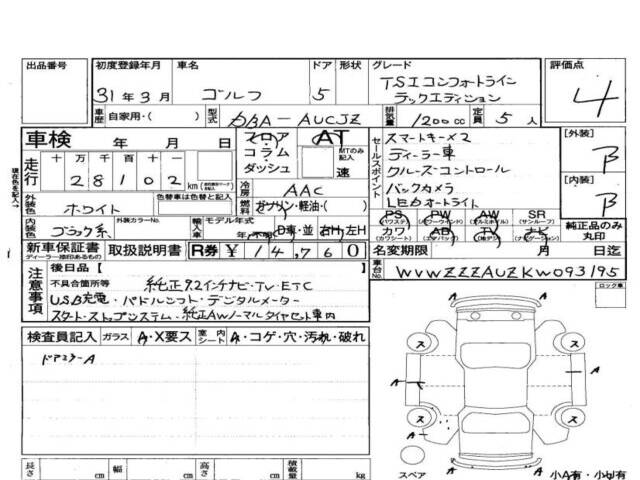 出品番号 初度登録年月 車名 ドア 形状 グレード 評価点
31年3月 ゴルフ 5 TSIコンフォートライン
テックエディション 4
車歴 自家用・( ) 型式 DBA-AUCJZ 排気量 1200cc 定員 5人
車検 年 月 日 フロア AT スマートキー×2 [外装]
コラム・ MTのみ記入 ディーラー車 B
走行 十万 万 千 百 十 一 ダッシュ 速 セールスポイント クルーズ・コントロール
28102 km 冷房 AAC バックカメラ [内装]
外装色 ホワイト 色替車は色替と記入 燃料 ガソリン・軽油・( ) LEDオートライト B
内装色 ブラック系 外装カラーNo. 輸入車 モデル年式 年・不明 D車・並 右H・左H PS PW AW SR
(パワステ) (パワーウインド) (アルミホイル) (サンルーフ)
カワ エアB TV ナビ 純正品のみ丸印
(カワシート) (エアバック) (ナビゲーション)
新車保証書 取扱説明書 R券 ¥ 14,760 名変期限 月 日迄
ディーラー捺印あるもの
車台No. WVWZZZAUZKW093195
注意事項 後日品[ ]
不具合箇所等 純正9.2インチナビ・TV・ETC
USB充電・パドルシフト・デジタルメーター
スタート・ストップシステム・純正AWノーマルタイヤセット車内
ロック車
検査員記入 ガラス A・X要ス 室内シート A・コゲ・穴・汚れ・破れ
ドアミラーA
A
ス ス
A A
ス ス
A
A
スペア
長さ cm 幅 cm 高さ cm 積載量 kg 小A有・小U有